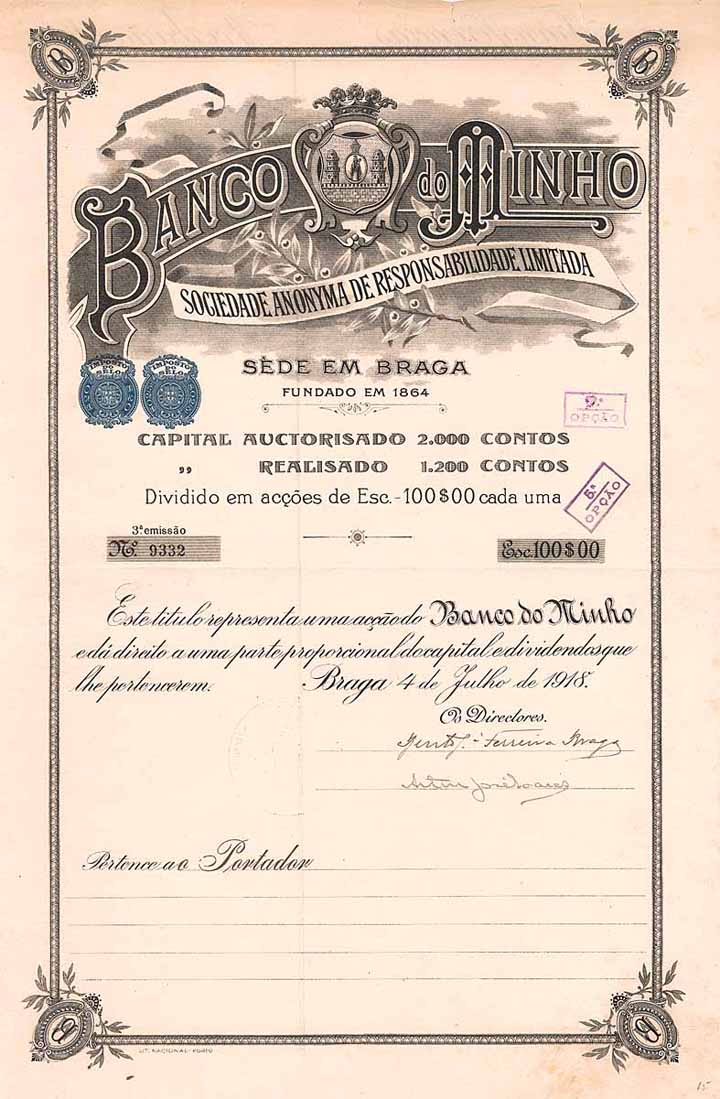 BANCO do MINHO
SOCIEDADE ANONYMA DE RESPONSABILIDADE LIMITADA
SÉDE EM BRAGA
FUNDADO EM 1864
IMPOSTO DO SELO IMPOSTO DO SELO
9.ª OPÇÃO
CAPITAL AUCTORISADO 2.000 CONTOS
„ REALISADO 1.200 CONTOS
5.ª OPÇÃO
Dividido em acções de Esc.-100$00 cada uma
3ª emissão
Nº 9332 Esc.100$00
Este titulo representa uma acção do Banco do Minho
e dá direito a uma parte proporcional do capital e dividendos que
lhe pertencerem. Braga 4 de Julho de 1918.
Os Directores.
Ferreira Braga
Pertence ao Portador
LIT. NACIONAL-PORTO
15